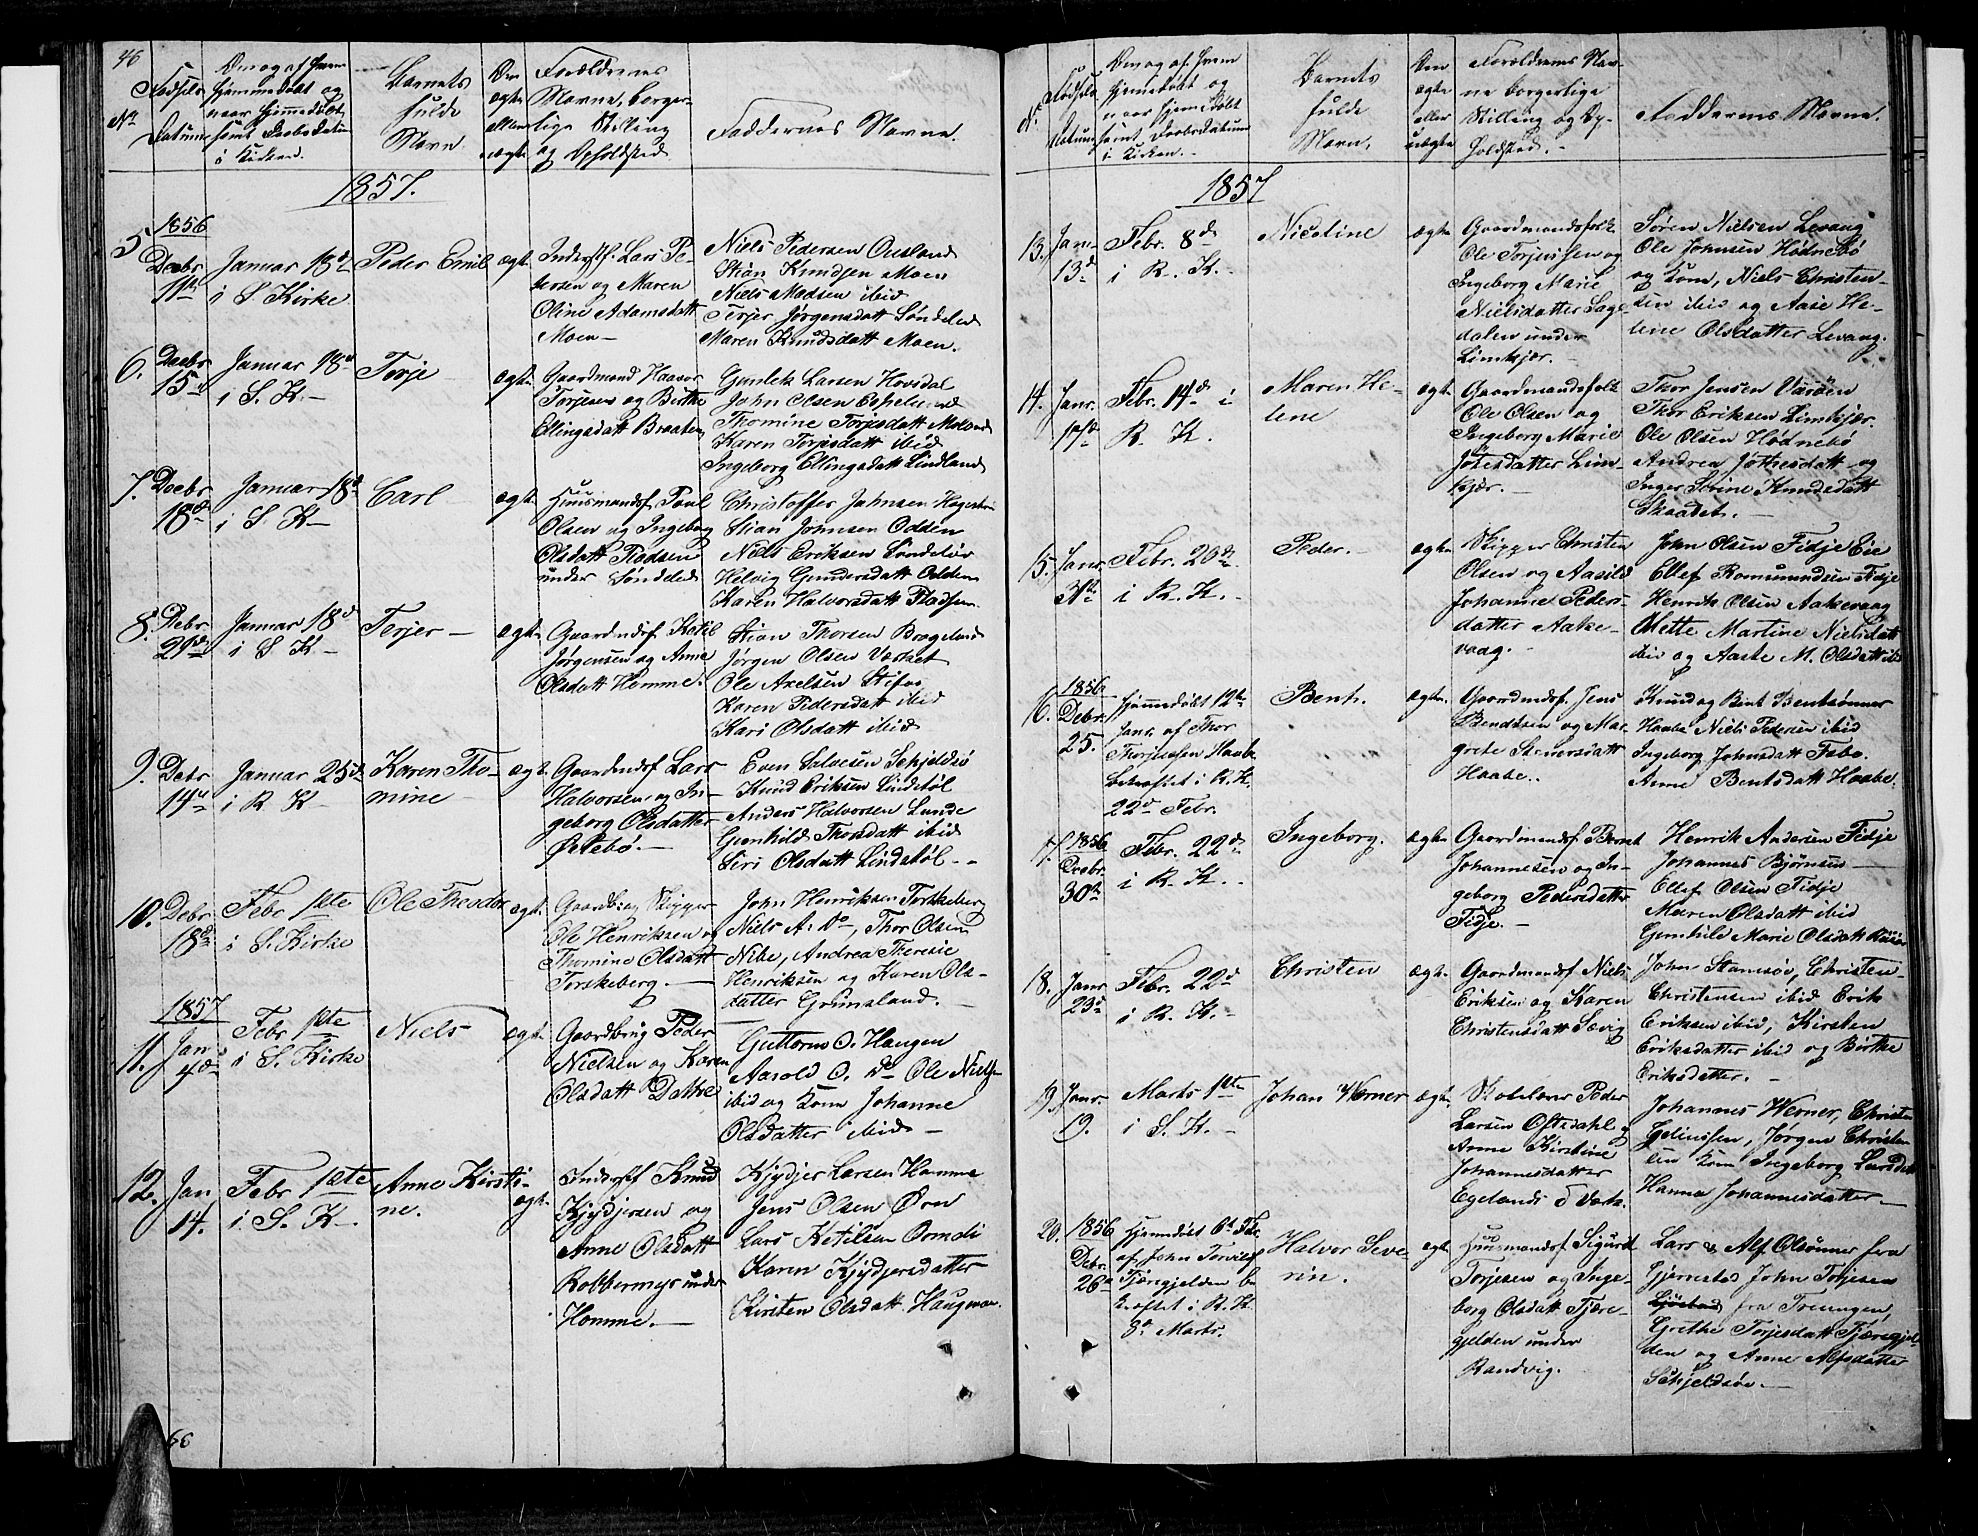 46
Fødsels
No
Datum
Om og af hvem
hjemmedøbt og
naar hjemmedøbt
samt Daabs Datum
i Kirken.
Barnets
fulde
Navn.
Om
ægte
eller
uægte
Forældrenes
Navne, borger-
lige Stilling
og Opholdsted
Faddernes Navne.
1857.
5
1856
Decbr
11te
Januar 18de
i S. Kirke
Peder Emil
ægt.
Inderstf. Lars Pe-
dersen og Maren
Oline Adamsdatt
Moen -
Niels Pedersen Ousland
Stian Knudsen Moen
Niels Madsen ibid
Terjer Jørgensdatt Søndeled
Maren Knudsdatt Moen.
6.
Decbr
15de
Januar 18de
i S. K. -
Terje
ægt.
Gaardmand Haaver
Torjesen og Birthe
Ellingsdatt Braaten
Gunlek Larsen Hovdal
John Olsen Espelund
Thomine Torjisdatt Moland
Karen Torjisdatt ibid
Ingeborg Ellingsdatt Lindland
7.
Decbr
18de
Januar 18de
i S. K -
Carl
ægt.
Huusmandsf. Poul
Olsen og Ingeborg
Olsdatt Pladsen
under Søndeled
Christoffer Jahnsen
Stian Johnsen Odden
Niels Eriksen Søndeled
Helvig Gundersdatt Odden
Karen Halvorsdatt Pladsen.
8.
Debr
21de
Januar 18de
i S. K -
Terjer -
ægt.
Gaardmdsf. Ketil
Jørgensen og Anne
Olsdatt Homme.
Stian Thorsen
Jørgen Olsen Værket
Ole Axelsen Stifos
Karen Pedersdatt ibid
Kari Olsdatt ibid
9.
Debr
14de
Januar 25de
i R. K
Karen Tho-
mine
ægt.
Gaardmdsf Lars
Halvorsen og In-
geborg Olsdatter
Østebø.
Even Salvesen Schjeldsø
Knud Eriksen Lindstøl
Anders Halvorsen Lunde
Gunhild Thorsdatt ibid
Siri Olsdatt Lindstøl -
10.
Debr
18de
Febr 1ste
i S. Kirke
Ole Theodor
ægt.
Gaardbr og Skipper
Ole Henriksen og
Thomine Olsdatt
Torskeberg. -
John Henriksen Torskeberg
Niels A. Do, Thor Olsen
Nibe, Andrea Theresie
Henriksen og Karen Ols-
datter Grimsland. -
1857
11.
Jan
4de
Febr 1ste
i S. Kirke
Niels
ægt.
Gaardbrug Peder
Nielsen og Karen
Olsdatt Dahle
Guttorm O. Haugen
Aarold O. Do Ole Niels
ibid og Kone Johanne
Olsdatter ibid -
12.
Jan
14.
Febr 1ste
i S. K -
Anne Kirsti-
ne.
ægt.
Inderstf Knud
Kjydjersen og
Anne Olsdatt
Robbermyr under
Homme. -
Kjydjer Larsen Homme
Jens Olsen Øen
Lars Ketilsen Ormdi
Karen Kjydjersdatter
Kirsten Olsdatt Haugmoen.
66
Fødsels
No
Datum
Om og af hvem
hjemmedøbt og
naar hjemedøbt
samt Daabs Datum
i Kirken. -
Barnets
fulde
Navn.
Om
ægte
eller
uægte
Forældrenes Nav-
ne borgerlige
Stilling og Op-
holdsted. -
Faddernes Navne.
1857
13.
Jan.
13de
Febr. 8de
i R. K. -
Nicoline
ægte
Gaardmandsfolk
Ole Torjussen og
Ingeborg Marie
Nielsdatter Lage-
dalen under
Limkjær. -
Søren Nielsen Levang
Ole Johnsen Hødnebø
og Kone, Niels Christen-
sen ibid og Aase He-
lene Olsdatter Levang.
14.
Janr.
17de
Febr. 14de i
R. K.
Maren He-
lene
ægt.
Gaardmandsfolk
Ole Olsen og
Ingeborg Marie
Jokesdatter Lim-
kjær. -
Thor Jensen Vasøen
Thor Eriksen Limkjær.
Ole Olsen Hødnebø
Andrea Jothesdatt og
Inger Serine Knudsdatt
Skaadet. -
15.
Janr.
31te
Febr. 20de
i R. K. -
Peder. -
ægte.
Skipper Christen
Olsen og Aasild
Johanne Peders-
datter Aake-
vaag. -
John Olsen Fidje Eie
Ellef Romundsen Fidje
Henrik Olsen Aakevaag
Mette Martine Nielsdatt
ibid og Aaste M. Olsdatt ibid
16.
1856
Debr.
25.
hjemmedøbt 12te
Janr. af Thor
Thorjussen Haabe
bekræftet i R. K.
22de Febr.
Bent.
ægte.
Gaardmdsf. Jens
Bendtsen og Mar-
grete Stenersdatt
Haabe. -
Knud og Bent Bentsønner
Haabe Niels Pedersen ibid
Ingeborg Johnsdatt Fabo.
Anne Bentsdatt Haabe.
17.
1856
Decbr.
30te
Febr. 22de
i R. K. -
Ingeborg.
ægte
Gaardmandsf. Bernt
Johannesen og In-
geborg Pedersdatter
Fidje. -
Henrik Andersen Fidje
Johannes Bjørnsen -
Ellef Olsen Fidje
Maren Olsdatt ibid
Gunhild Marie Olsdatt
18.
Janr.
23de
Febr. 22de
i R. K. -
Christen
ægt.
Gaardmandsf Niels
Eriksen og Karen
Christensdatt Sævig
John Stamsøe, Christen
Christensen ibid Erik
Eriksen ibid, Kirsten
Eriksdatter ibid og Birthe
Eriksdatter. -
19.
Janr.
19.
Marts 1ste
i S. K. -
Johan Werner
ægt.
Skolelærer Peder
Larsen Oftedahl og
Anne Kirstine
Johannesdatter
Egelands Værk.
Johannes Werner, Christen
Jørgen Christen
sen Kone Ingeborg Larsdatt
Hanna Johannesdatter -
20.
1856
Debr.
26de
Hjemmdøbt 6te Febr.
af John Torvildsen
Tjæregjelden be-
kræftet i R. K.
8de Marts.
Halvor Seve-
rin.
ægt.
Huusmandsf Sigurd
Torjesen og Inge-
borg Olsdatt Tjære-
gjelden under
Randvig.
Lars og Alf Olsønner fra
Gjernstad John Torjesen
fra Treungen,
Grethe Torjesdatt Tjæregjel-
den og Anne Alfsdatter
Schjeldsøe. -